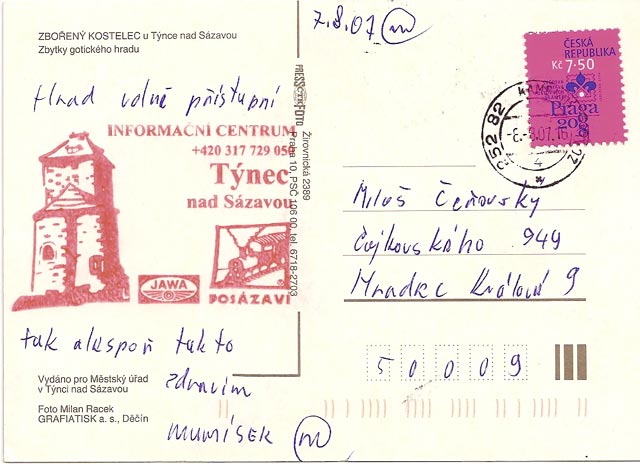 ZBOŘENÝ KOSTELEC u Týnce nad Sázavou
Zbytky gotického hradu
7.8.07 m
Hrad volně přístupní
INFORMAČNÍ CENTRUM
+420 317 729 050
Týnec
nad Sázavou
JAWA
POSÁZAVÍ
tak alespoň takto
zdravím
MUMÍSEK m
Vydáno pro Městský úřad
v Týnci nad Sázavou
Foto Milan Racek
GRAFIATISK a. s., Děčín
PRESSFOTO
Žirovnická 2389
Praha 10, PSČ 106 00, tel. 6718-2703
ČESKÁ
REPUBLIKA
Kč 7·50
Praga
2008
252 82
-8.-8.07.16
4
Miloš Čeňovský
Čajkovského 949
Hradec Králové 9
50009